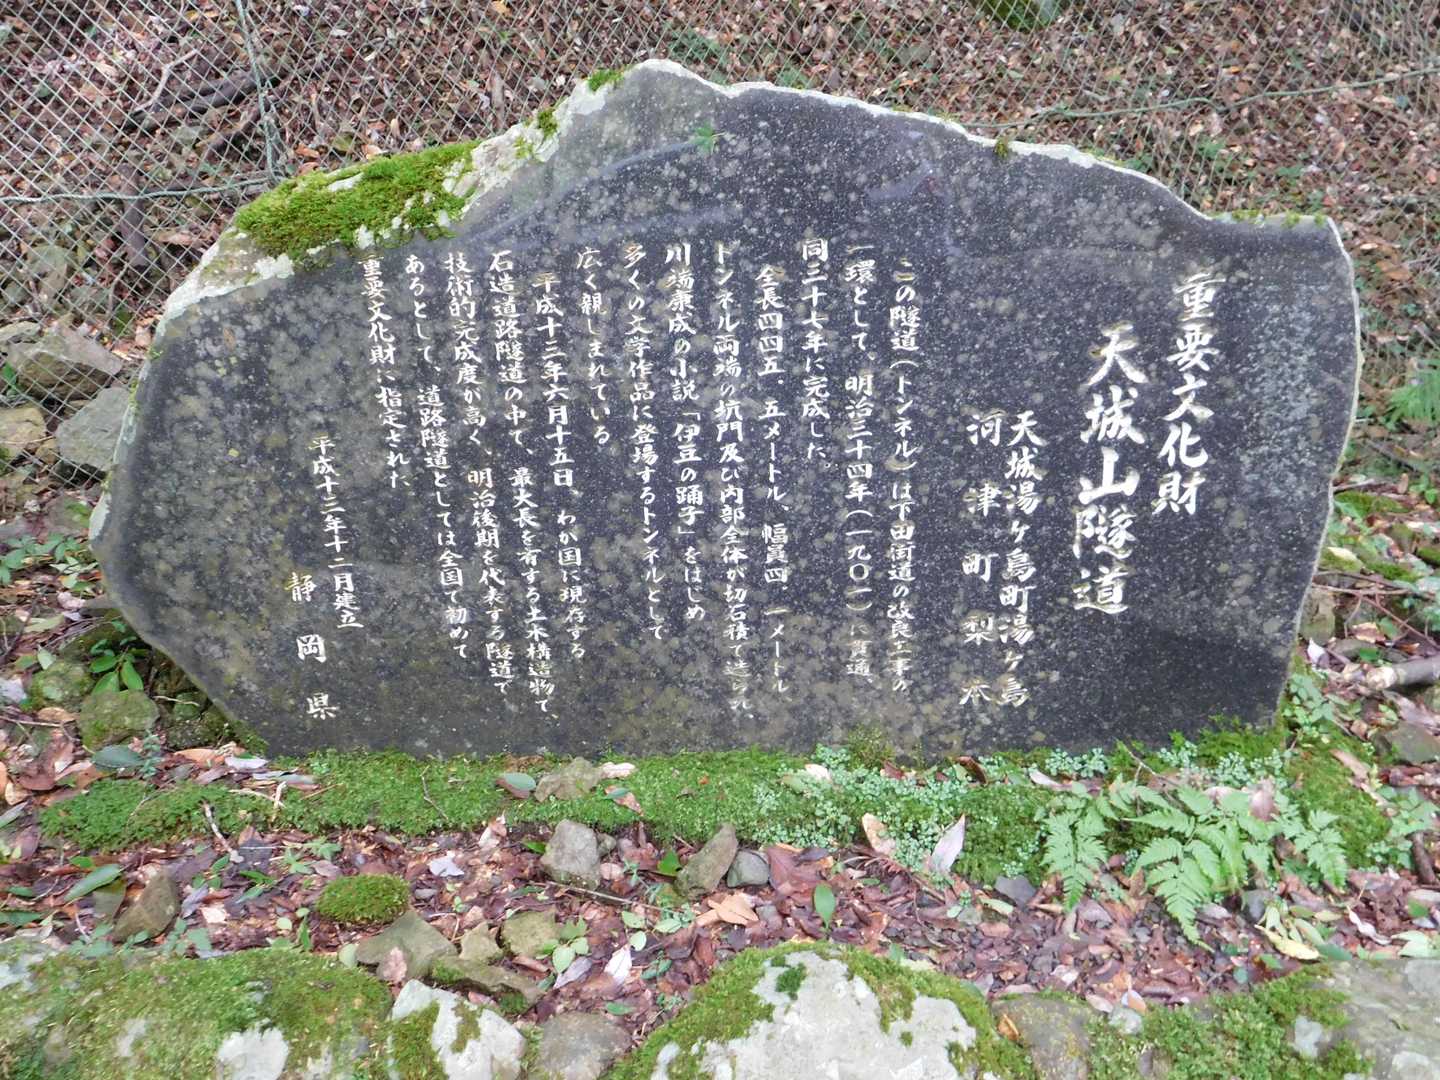 重要文化財
天城山隧道
天城湯ケ島町湯ケ島
河津町梨本
この隧道（トンネル）は下田街道の改良工事の
一環として、明治三十四年（一九〇一）に貫通、
同三十七年に完成した。
全長四四五．五メートル、幅員四．一メートル
トンネル両端の坑門及び内部全体が切石積で造られ、
川端康成の小説「伊豆の踊子」をはじめ
多くの文学作品に登場するトンネルとして
広く親しまれている
平成十三年六月十五日、わが国に現存する
石造道路隧道の中で、最大長を有する土木構造物で、
技術的完成度が高く、明治後期を代表する隧道で
あるとして、道路隧道としては全国で初めて
重要文化財に指定された
平成十三年十二月建立
静岡県